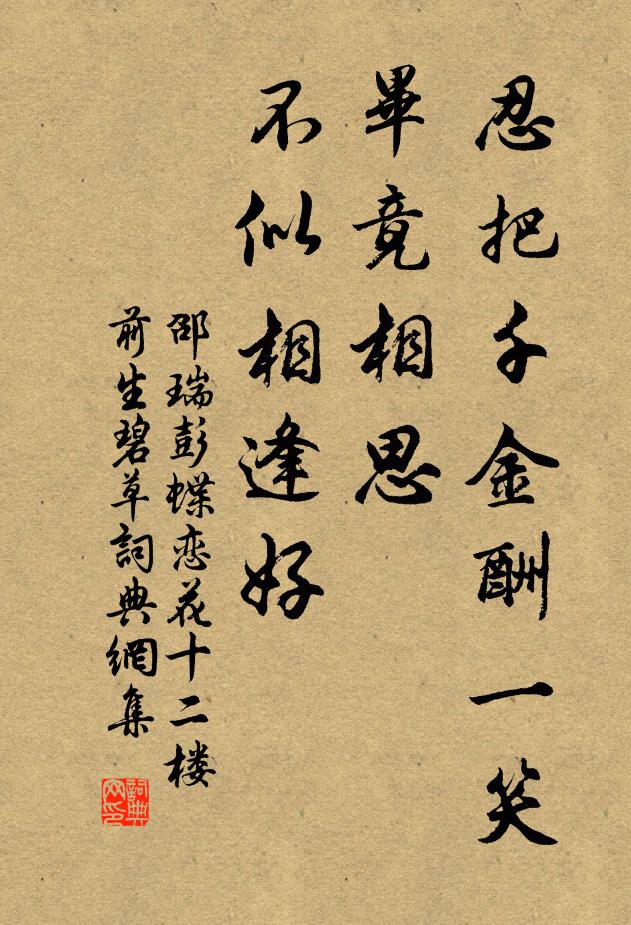 忍把千金酬一笑
畢竟相思
不似相逢好
邵瑞彭蝶恋花十二楼
前生碧草詞典網集
詞典网印